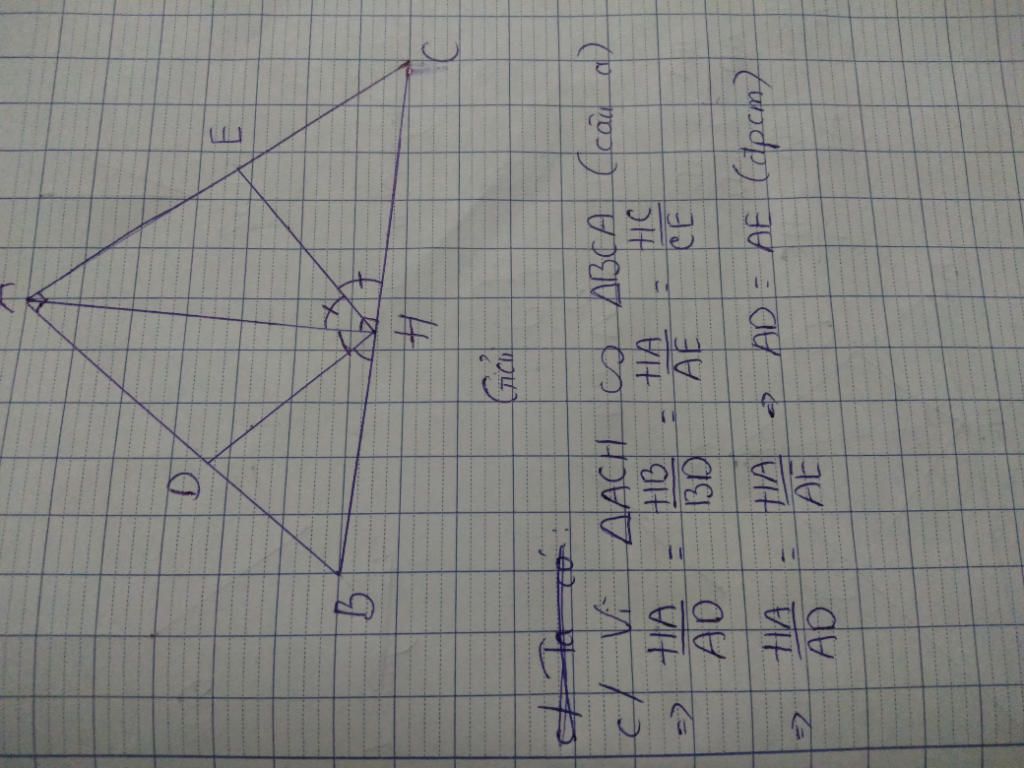 A
D
E
B
H
C
Giải
c/ Ta có:
c/ Vì ΔACH ∽ ΔBCA (câu a)
=> HA/AD = HB/BD = HA/AE = HC/CE
=> HA/AD = HA/AE => AD = AE (đpcm)